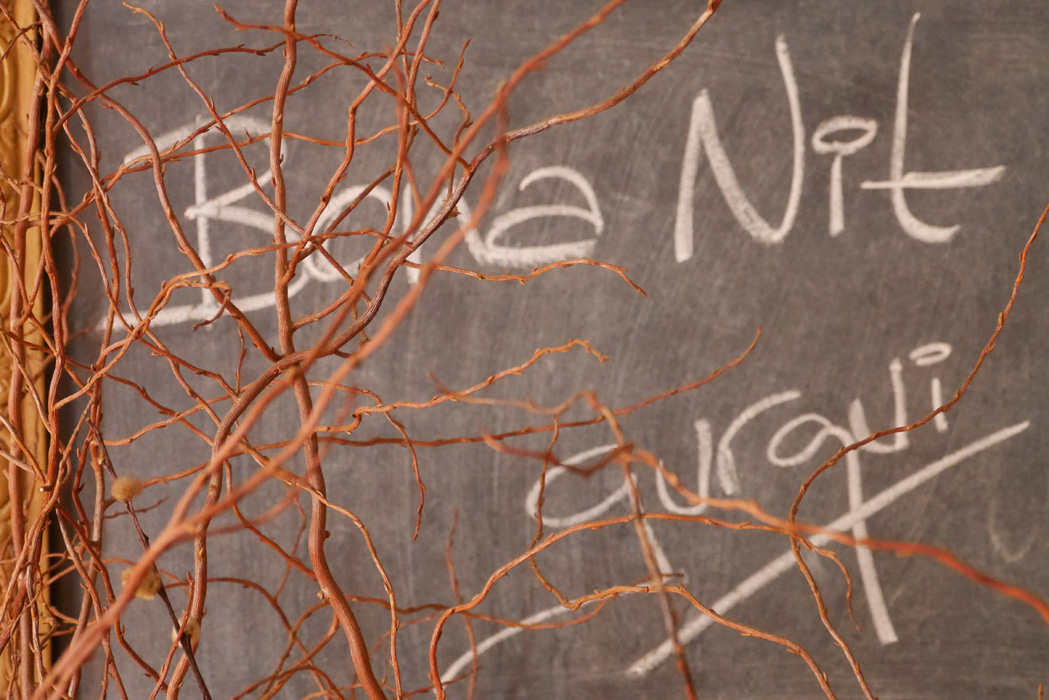 Bona Nit
gurqui